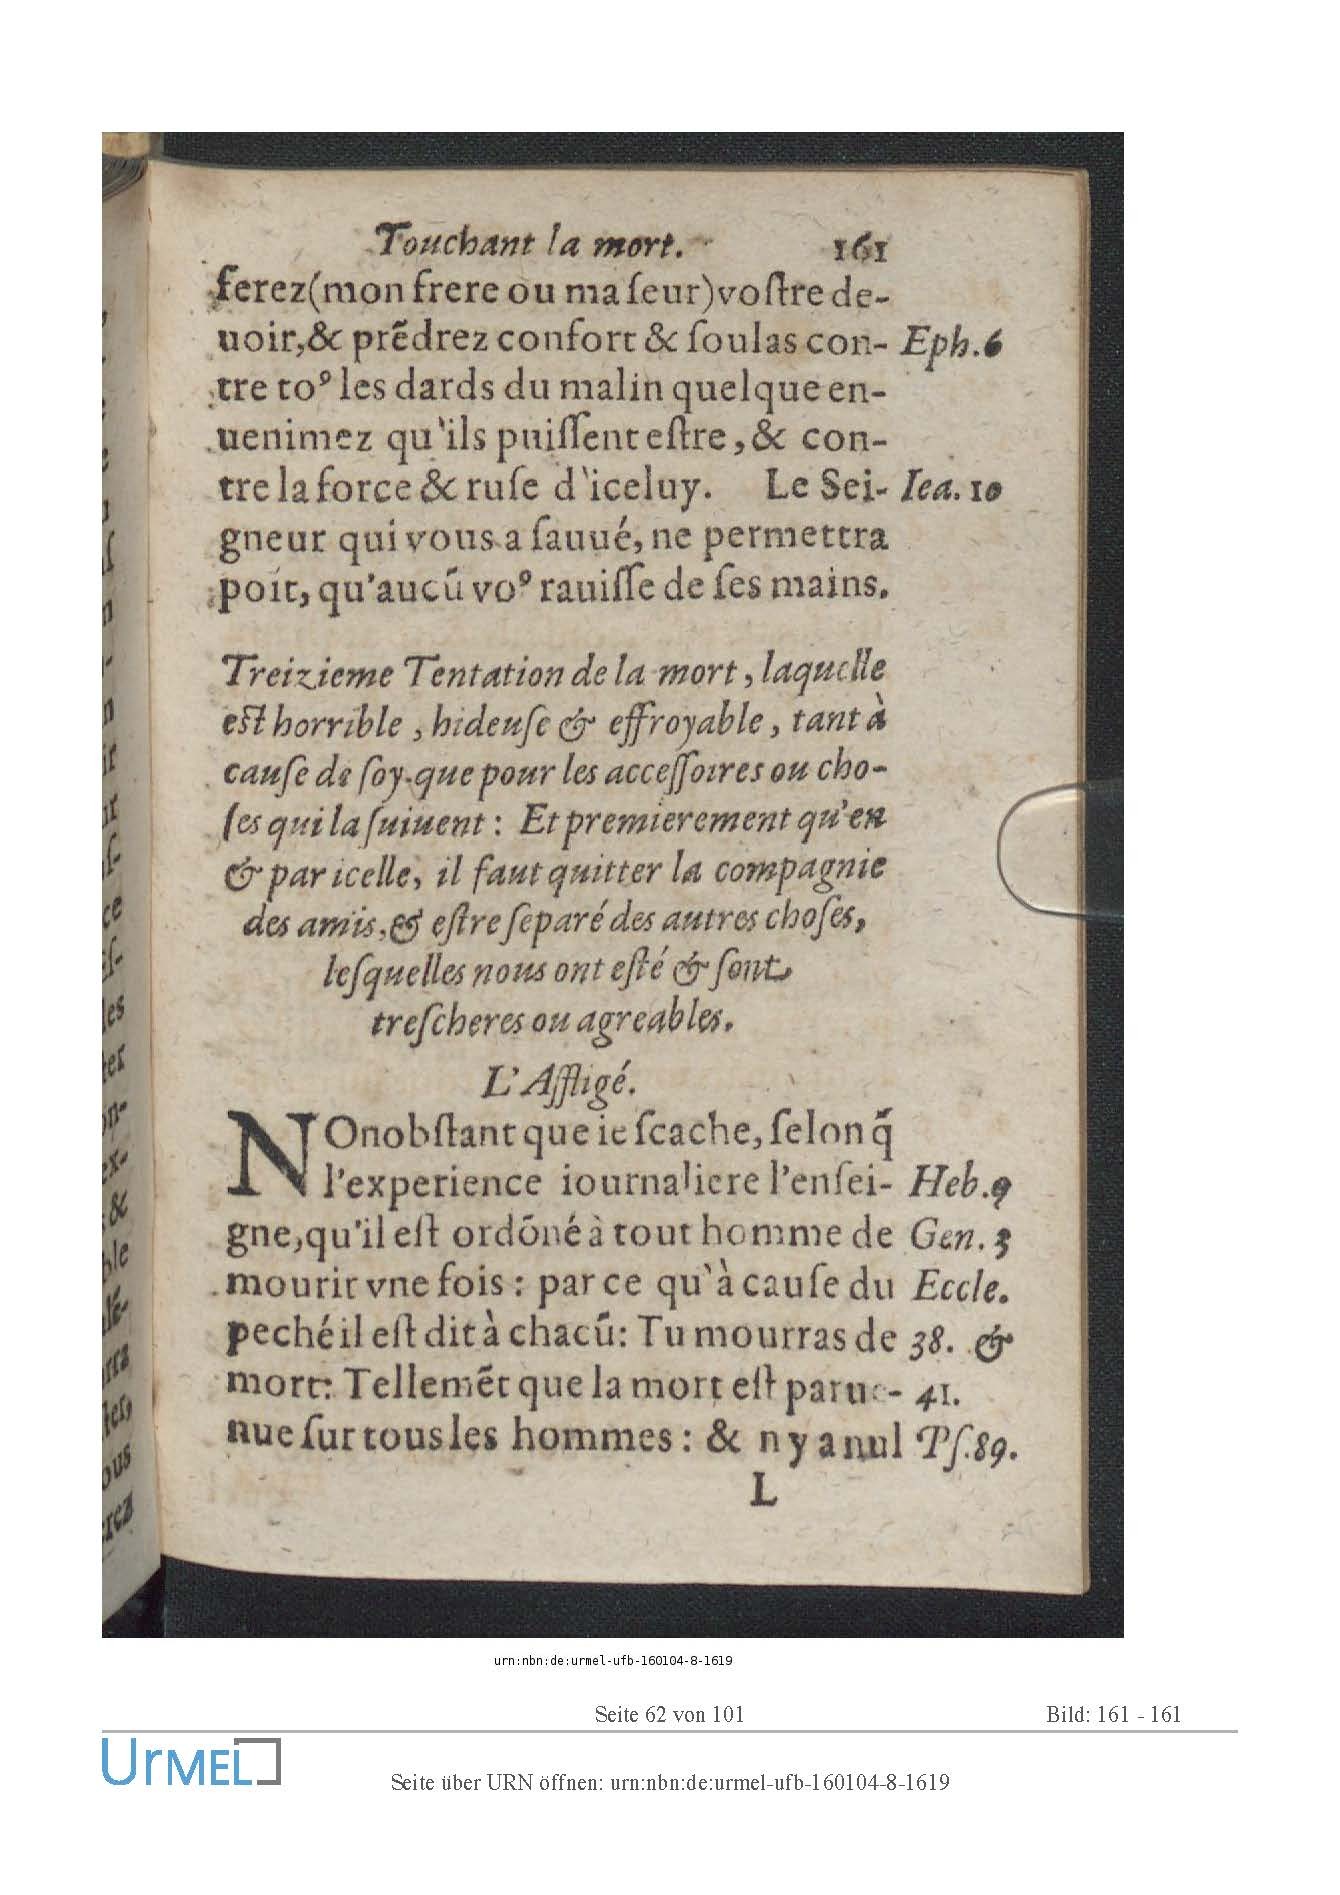 Touchant la mort. 161
ferez(mon frere ou ma ſeur)voſtre de-
uoir,& prẽdrez confort & ſoulas con- Eph.6
tre toꝰ les dards du malin quelque en-
uenimez qu'ils puiſſent eſtre, & con-
tre la force & ruſe d'iceluy. Le Sei- Iea. 10
gneur qui vous a ſauué, ne permettra
poĩt, qu'aucũ voꝰ rauiſſe de ſes mains.
Treizieme Tentation de la mort, laquelle
eſt horrible, hideuſe & effroyable, tant à
cauſe de ſoy que pour les acceſſoires ou cho-
ſes qui la ſuiuent : Et premierement qu'en
& par icelle, il faut quitter la compagnie
des amis, & eſtre ſeparé des autres choſes,
leſquelles nous ont eſté & ſont
treſcheres ou agreables.
L'Affligé.
NOnobſtant que ie ſcache, ſelon q̃
l'experience iournaliere l'enſei- Heb.9
gne,qu'il eſt ordõné à tout homme de Gen. 3
mourir vne fois : par ce qu'à cauſe du Eccle.
peché il eſt dit à chacũ: Tu mourras de 38. &
mort: Tellemẽt que la mort eſt parue- 41.
nue ſur tous les hommes : & n y a nul Pſ.89.
L
ſ
ir
ur
ce
iſ-
les
ter
on-
ex-
&
ble
lé-
rra
les,
ous
rez
urn:nbn:de:urmel-ufb-160104-8-1619
Seite 62 von 101 Bild: 161 - 161
UrMEL
Seite über URN öffnen: urn:nbn:de:urmel-ufb-160104-8-1619